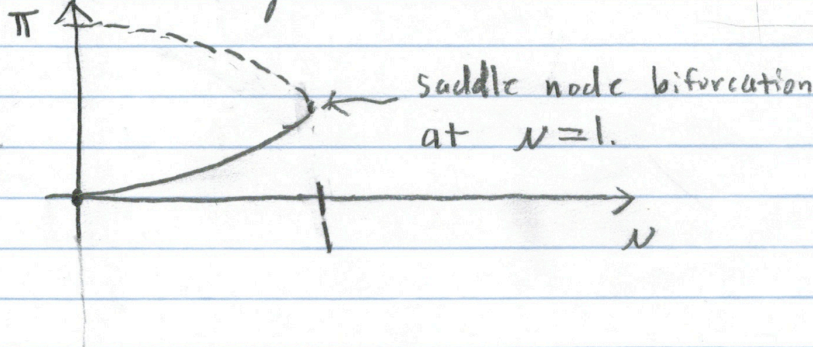 π
saddle node bifurcation
at μ = 1.
1
μ